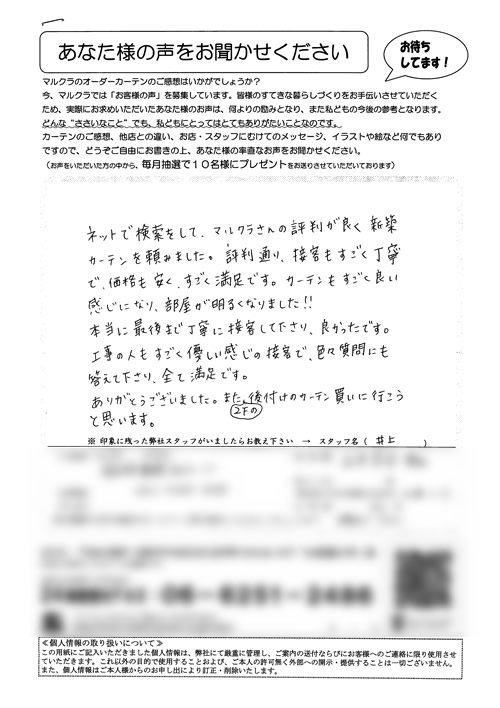 あなた様の声をお聞かせください
お待ち
してます！
マルクラのオーダーカーテンのご感想はいかがでしょうか？
今、マルクラでは「お客様の声」を募集しています。皆様のすてきな暮らしづくりをお手伝いさせていただく
ため、実際にお求めいただいたあなた様のお声は、何よりの励みとなり、また私どもの今後の参考となります。
どんな“ささいなこと”でも、私どもにとってはとてもありがたいことなのです。
カーテンのご感想、他店との違い、お店・スタッフにむけてのメッセージ、イラストや絵など何でもあり
ですので、どうぞご自由にお書きの上、あなた様の率直なお声をお聞かせください。
（お声をいただいた方の中から、毎月抽選で１０名様にプレゼントをお送りさせていただいております）
ネットで検索をして、マルクラさんの評判が良く新築
カーテンを頼みました。評判通り、接客もすごく丁寧
で、価格も安く、すごく満足です。カーテンもすごく良い
感じになり、部屋が明るくなりました!!
本当に最後まで丁寧に接客して下さり、良かったです。
工事の人もすごく優しい感じの接客で、色々質問にも
答えて下さり、全て満足です。
ありがとうございました。また、後付けのカーテン買いに行こう
2Fの
と思います。
※ 印象に残った弊社スタッフがいましたらお教え下さい → スタッフ名（ 井上 ）
06-6251-2486
≪個人情報の取り扱いについて≫
この用紙にご記入いただきました個人情報は、弊社にて厳重に管理し、ご案内の送付ならびにお客様へのご連絡に限り使用させ
ていただきます。これ以外の目的で使用することおよび、ご本人の許可無く外部への開示・提供することは一切ございません。
また、個人情報はご本人様からのお申し出により訂正・削除いたします。